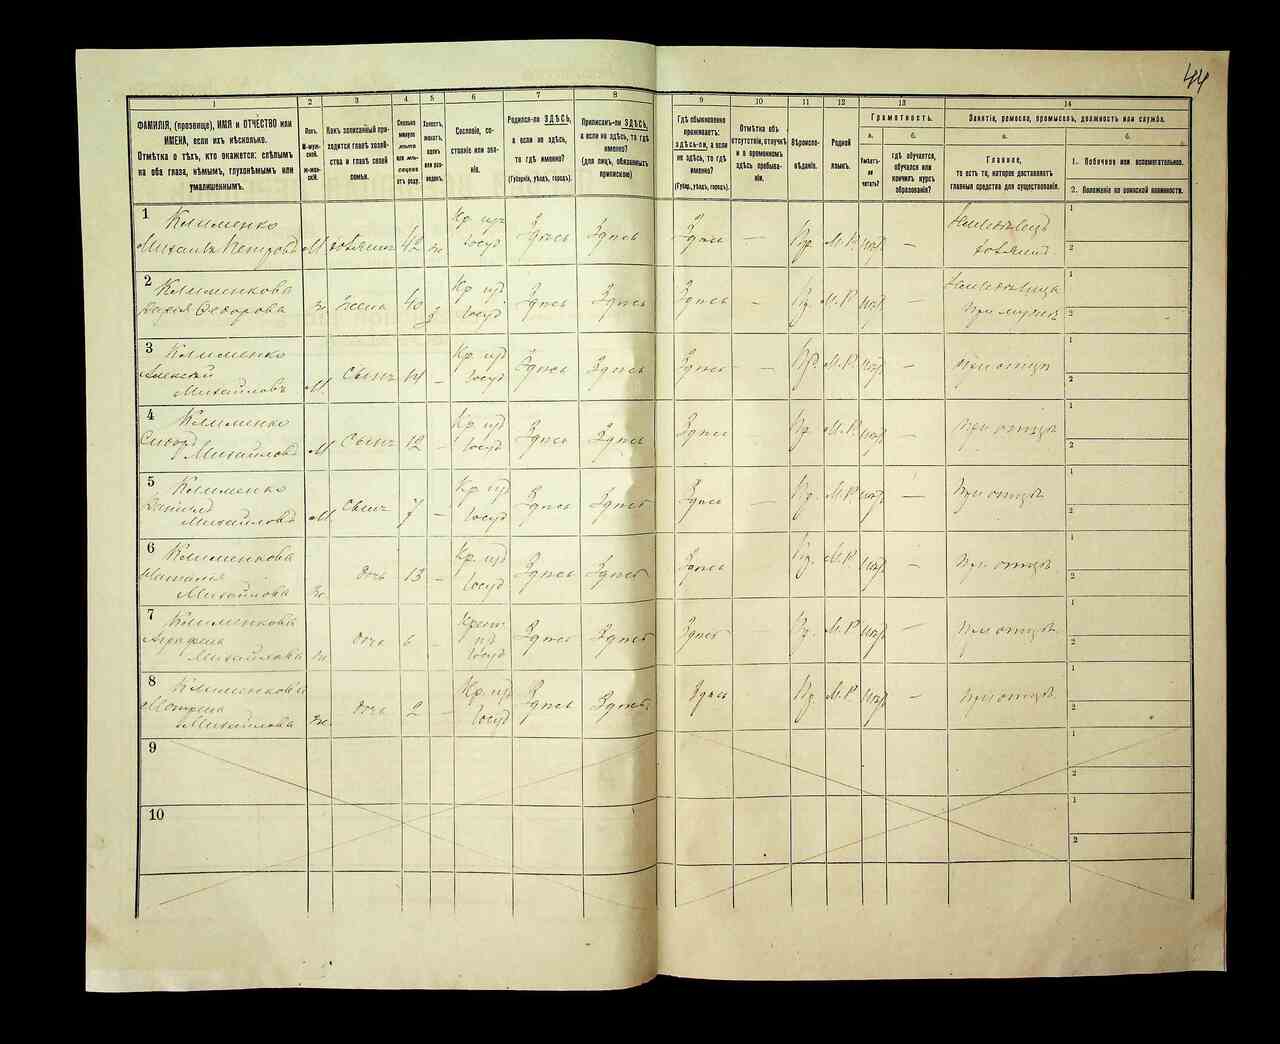 44
1 2 3 4 5 6 7 8 9 10 11 12 13 14
ФАМИЛІЯ, (прозвище), ИМЯ и ОТЧЕСТВО или
ИМЕНА, если ихъ нѣсколько.
Отмѣтка о тѣхъ, кто окажется: слѣпымъ
на оба глаза, нѣмымъ, глухонѣмымъ или
умалишеннымъ.
Полъ.
М-муж-
ской.
ж-жен-
скій.
Какъ записанный при-
ходится главѣ хозяй-
ства и главѣ своей
семьи.
Сколько
минуло
лѣтъ
или мѣ-
сяцевъ
отъ роду.
Холостъ,
женатъ,
вдовъ
или раз-
веденъ.
Сословіе, со-
стояніе или зва-
ніе.
Родился-ли ЗДѢСЬ,
а если не здѣсь,
то гдѣ именно?
(Губернія, уѣздъ, городъ).
Приписанъ-ли ЗДѢСЬ,
а если не здѣсь, то гдѣ
именно?
(для лицъ, обязанныхъ
припискою)
Гдѣ обыкновенно
проживаетъ:
здѣсь-ли, а если
не здѣсь, то гдѣ
именно?
(Губер., уѣздъ, городъ).
Отмѣтка объ
отсутствіи, отлучкѣ
и о временномъ
здѣсь пребыва-
ніи.
Вѣроиспо-
вѣданіе.
Родной
языкъ.
Грамотность.
а.
Умѣетъ-
ли
читать?
б.
гдѣ обучается,
обучался или
кончилъ курсъ
образованія?
Занятіе, ремесло, промыселъ, должность или служба.
а.
Главное,
то есть то, которое доставляетъ
главныя средства для существованія.
б.
1. Побочное или вспомогательное.
2. Положеніе по воинской повинности.
1 Клименко
Михаилъ Петровъ М хозяинъ 42 ж. Кр. из Госуд Здѣсь Здѣсь Здѣсь — Пр. М.Р. — 1
хозяинъ 2
2 Клименкова
Дарія Федорова ж. жена 40 з Кр. из Госуд Здѣсь Здѣсь Здѣсь — Пр М.Р — 1
при мужѣ 2
3 Клименко
Алексѣй
Михайловъ М. сынъ 14 — Кр. из Госуд Здѣсь Здѣсь Здѣсь — Пр. М.Р. — при отцѣ 1
2
4 Клименко
Михайловъ М сынъ 12 — Кр. из Госуд Здѣсь Здѣсь Здѣсь — Пр М.Р. — при отцѣ 1
2
5 Клименко
Данилъ
Михайловъ М сынъ 7 — Кр из Госуд Здѣсь Здѣсь Здѣсь — Пр. М.Р — при отцѣ 1
2
6 Клименкова
Наталія
Михайлова ж. дочь 13 — Кр. из Госуд Здѣсь Здѣсь Здѣсь — Пр. М.Р. — при отцѣ 1
2
7 Клименкова
Агрофена
Михайлова ж. дочь 6 — из Госуд Здѣсь Здѣсь Здѣсь — Пр. М.Р — при отцѣ 1
2
8 Клименкова
Мотрена
Михайлова ж. дочь 2 — Кр. из Госуд Здѣсь Здѣсь Здѣсь Пр. М.Р — при отцѣ 1
2
9 1
2
10 1
2